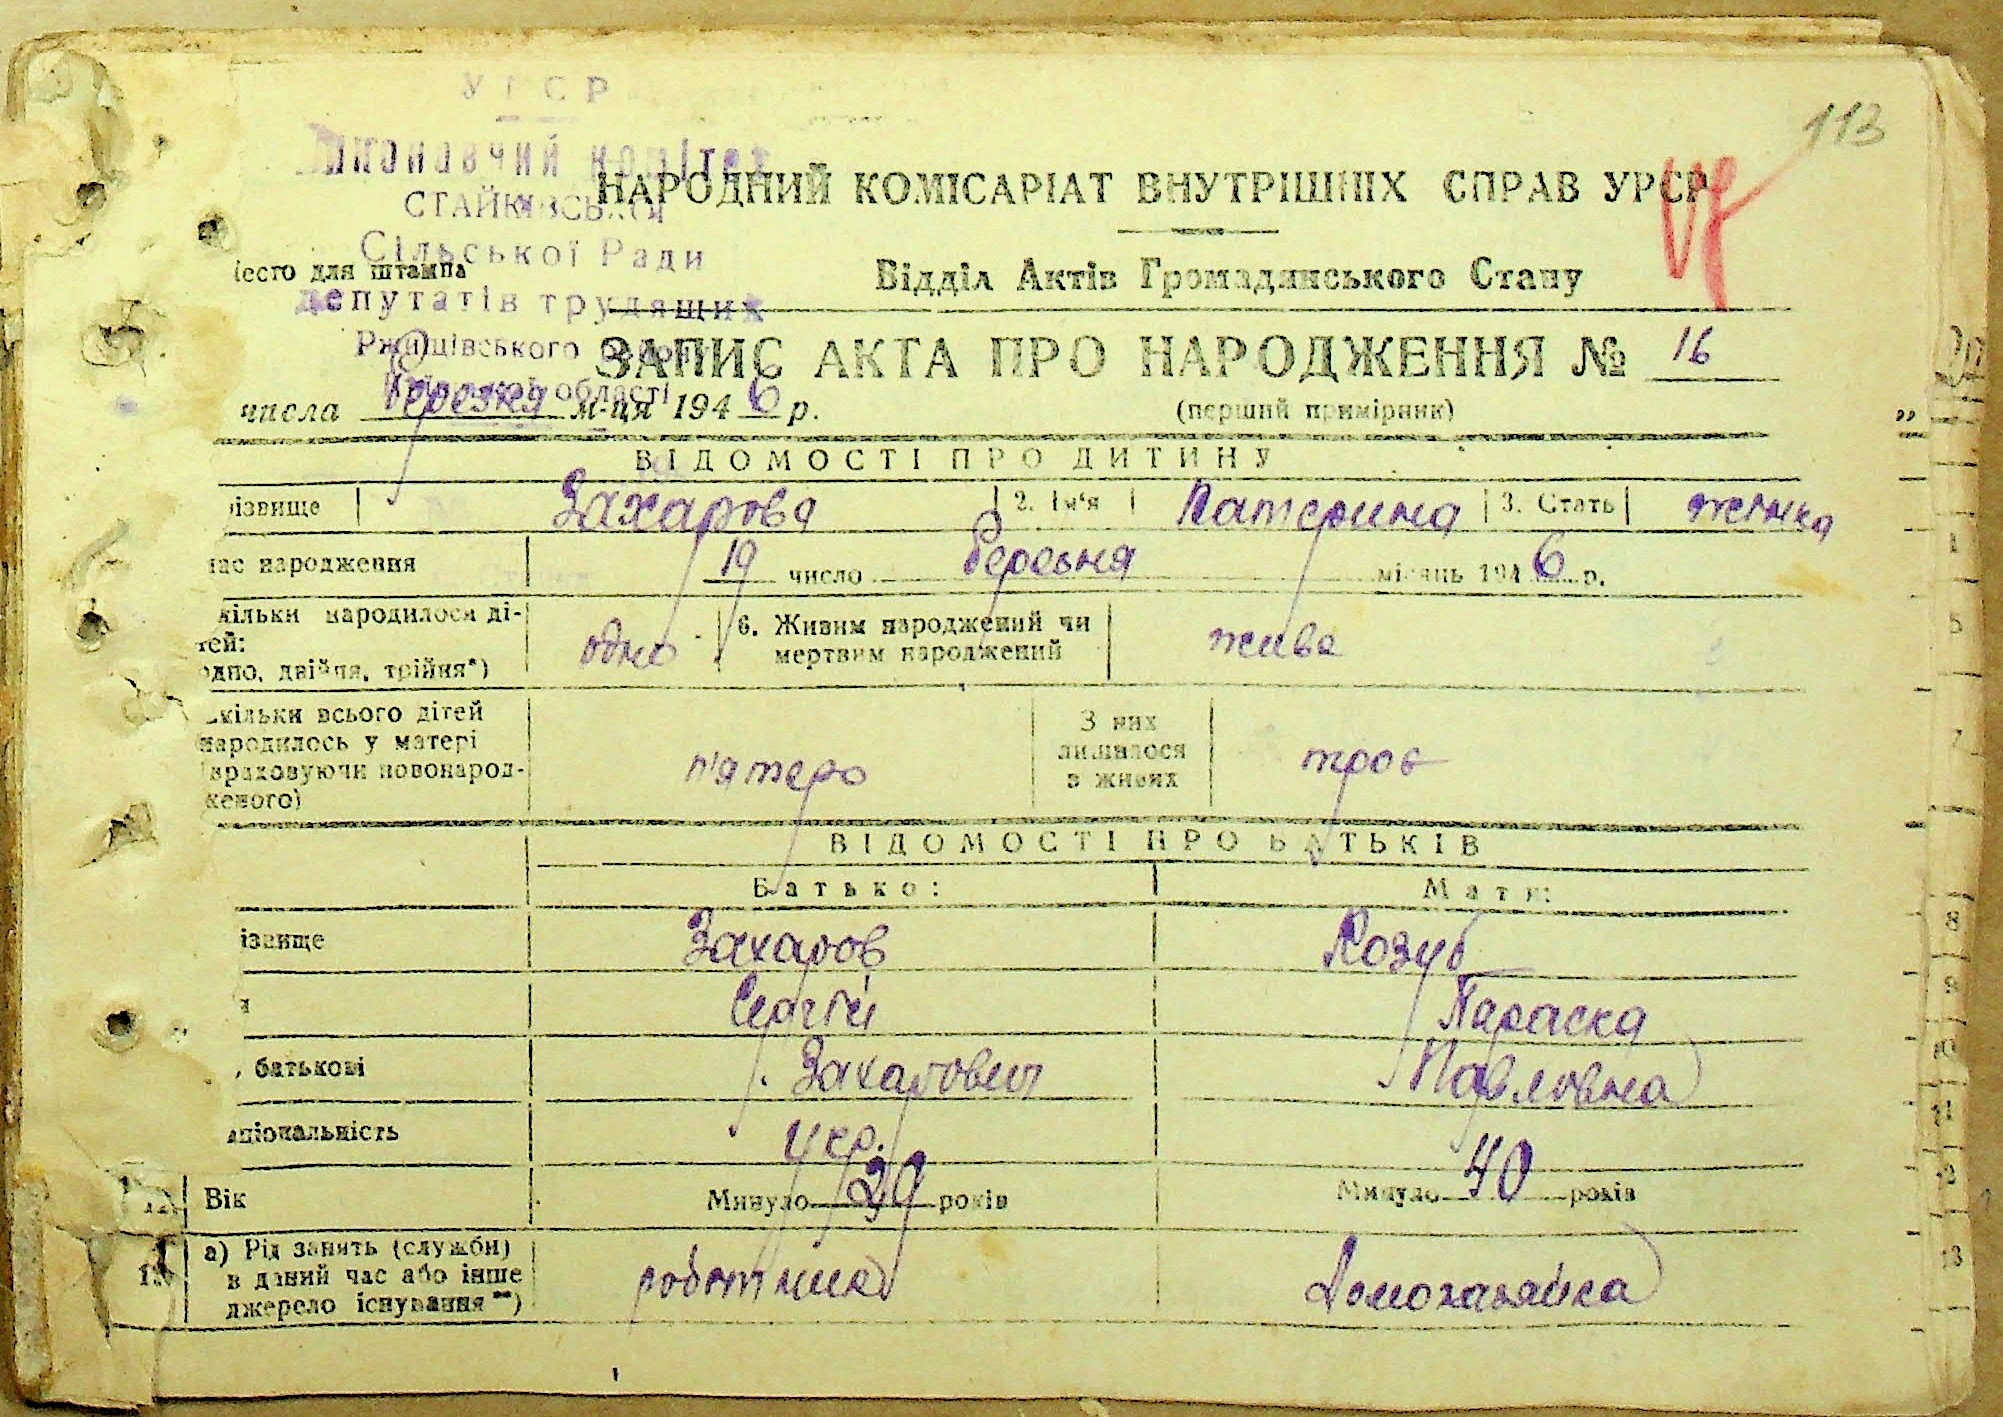 113
УРСР
Виконавчий комітет
СТАЙКІВСЬКОЇ
Сільської Ради
депутатів трудящих
Ржищівського району
Київської області
НАРОДНИЙ КОМІСАРІАТ ВНУТРІШНІХ СПРАВ УРСР
Місто для штампа
Відділ Актів Громадянського Стану
ЗАПИС АКТА ПРО НАРОДЖЕННЯ № 16
числа березня м-ця 1946 р.
(перший примірник)
ВІДОМОСТІ ПРО ДИТИНУ
ізвище Захарова 2. Ім'я Катерина 3. Стать жінка
час народження 19 число березня місяць 1946 р.
кільки народилося ді-
тей:
одно, двійня, трійня*) одно 6. Живим народжений чи
мертвим народжений жива
кільки всього дітей
народилось у матері
(враховуючи новонарод-
женого) п'ятеро З них
лишилося
в живих троє
ВІДОМОСТІ ПРО БАТЬКІВ
Батько: Мати:
ізвище Захаров Козуб
я Сергій Параска
батькові Захарович Павловна
аціональність укр.
12 Вік Минуло 29 років Минуло 40 років
13 а) Рід занять (служби)
в даний час або інше
джерело існування**) робітник Домохазяйка
1
5
7
8
9
10
11
12
13